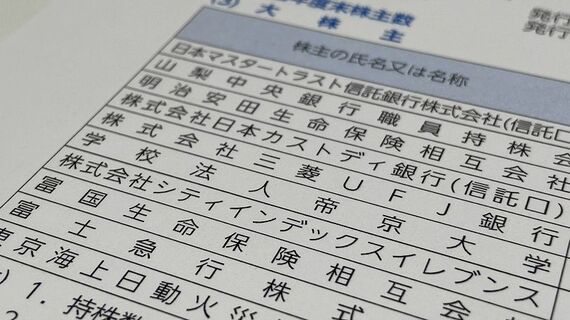 年度末株主数
発行
(3) 大株主
発行
株主の氏名又は名称
日本マスタートラスト信託銀行株式会社(信託口
山梨中央銀行職員持株会
明治安田生命保険相互会社
株式会社日本カストディ銀行(信託口)
株式会社三菱UFJ銀行
学校法人帝京大学
株式会社シティインデックスイレブンス
富国生命保険相互会
富士急行株式
東京海上日動火災
1. 持株数